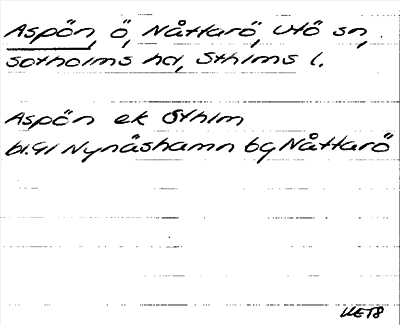 Aspön, ö, Nåttarö, Utö sn,
Sotholms hd, Sthlms l.
Aspön ek Sthlm
bl. 91 Nynäshamn bg Nåttarö